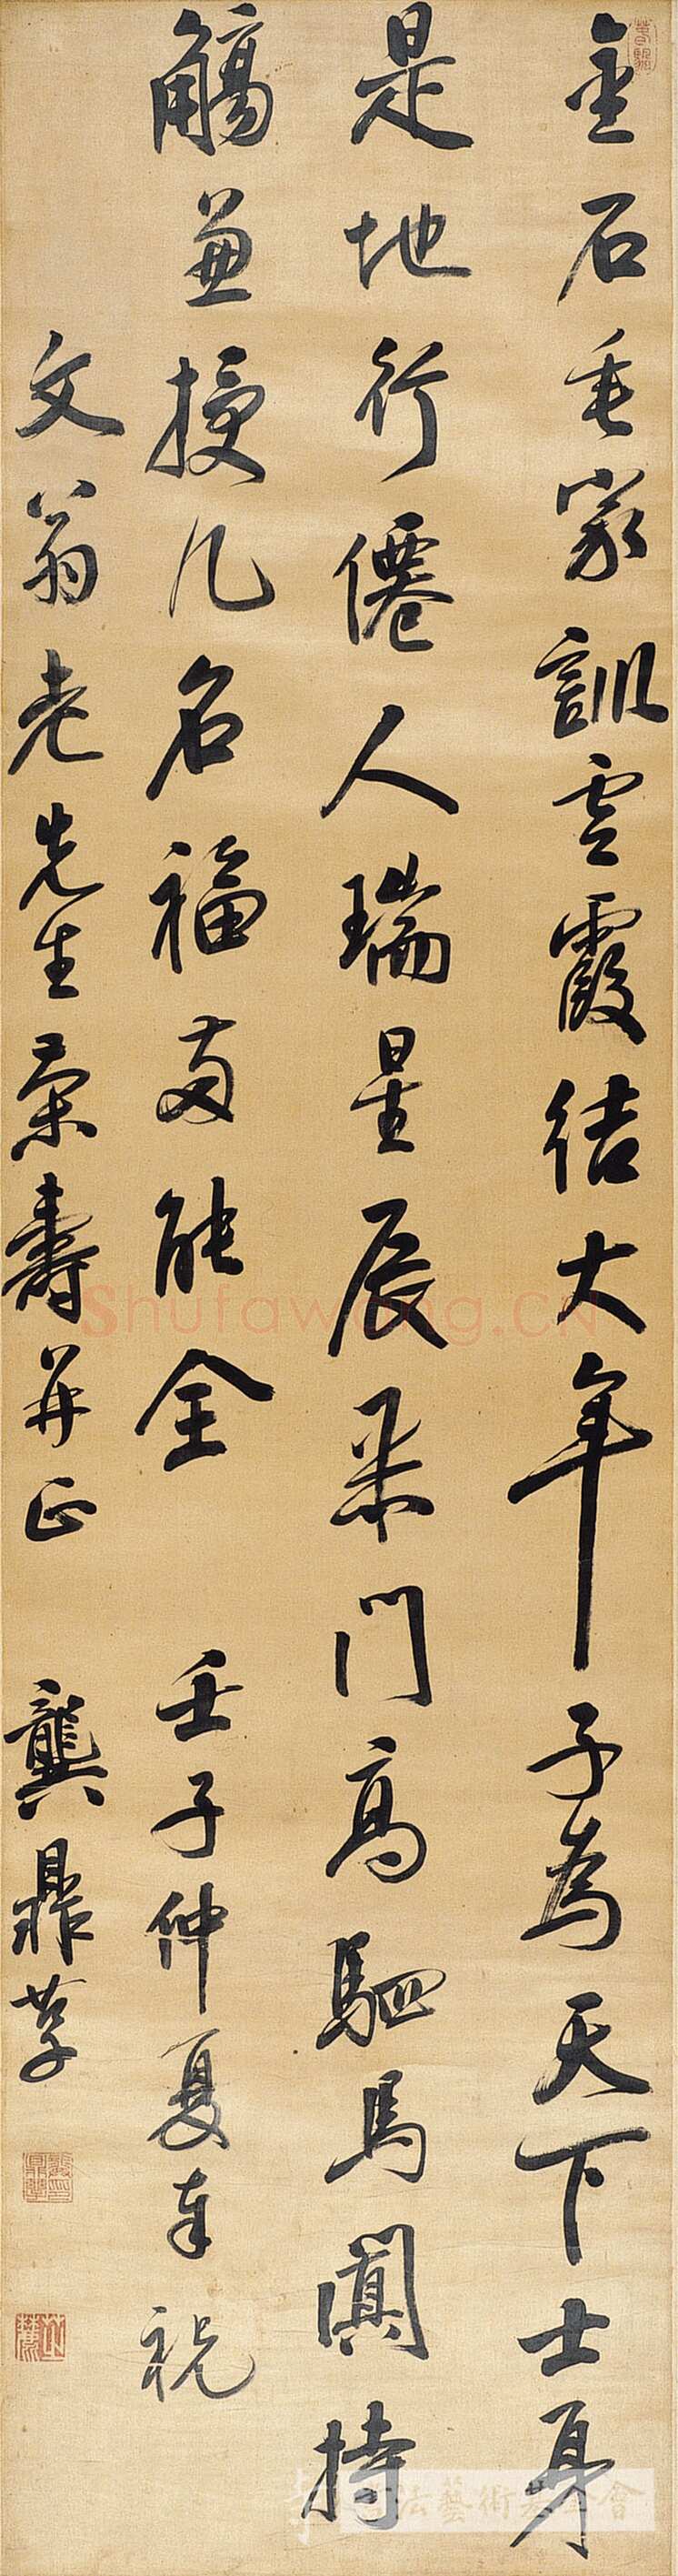 金石垂家訓雲霞結大年子為天下士身
是地行僊人瑞星辰采門高駟馬闐持
觴兼授几名福兩能全 壬子仲夏奉祝
文翁老先生榮壽并正 龔鼎孳
Shufawang.CN
法藝術基金會